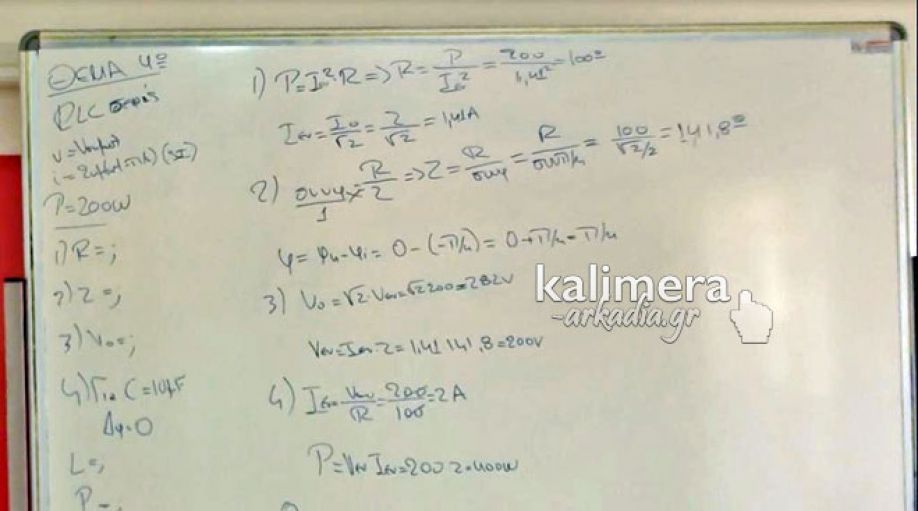 ΘΕΜΑ 4º
RLC σειράς
P=200W
1) R=;
2) Z=;
3) V₀=;
4) Για C=10μF
Δφ=0
L=;
P=;
1) P=Iεν²R=>R=P/Iεν²=200/1,41²=100Ω
Iεν=I₀/√2=2/√2=1,41A
2) συνφ/1=R/Z=>Z=R/συνφ=R/συνπ/4=100/√2/2=141,8Ω
φ=φu-φi=0-(-π/4)=0+π/4=π/4
3) V₀=√2·Vεν=√2 200=282V
Vεν=Iεν·Z=1,41 141,8=200V
4) Iεν=Vεν/R=200/100=2A
P=Vεν Iεν=200 2=400W
kalimera
-arkadia.gr